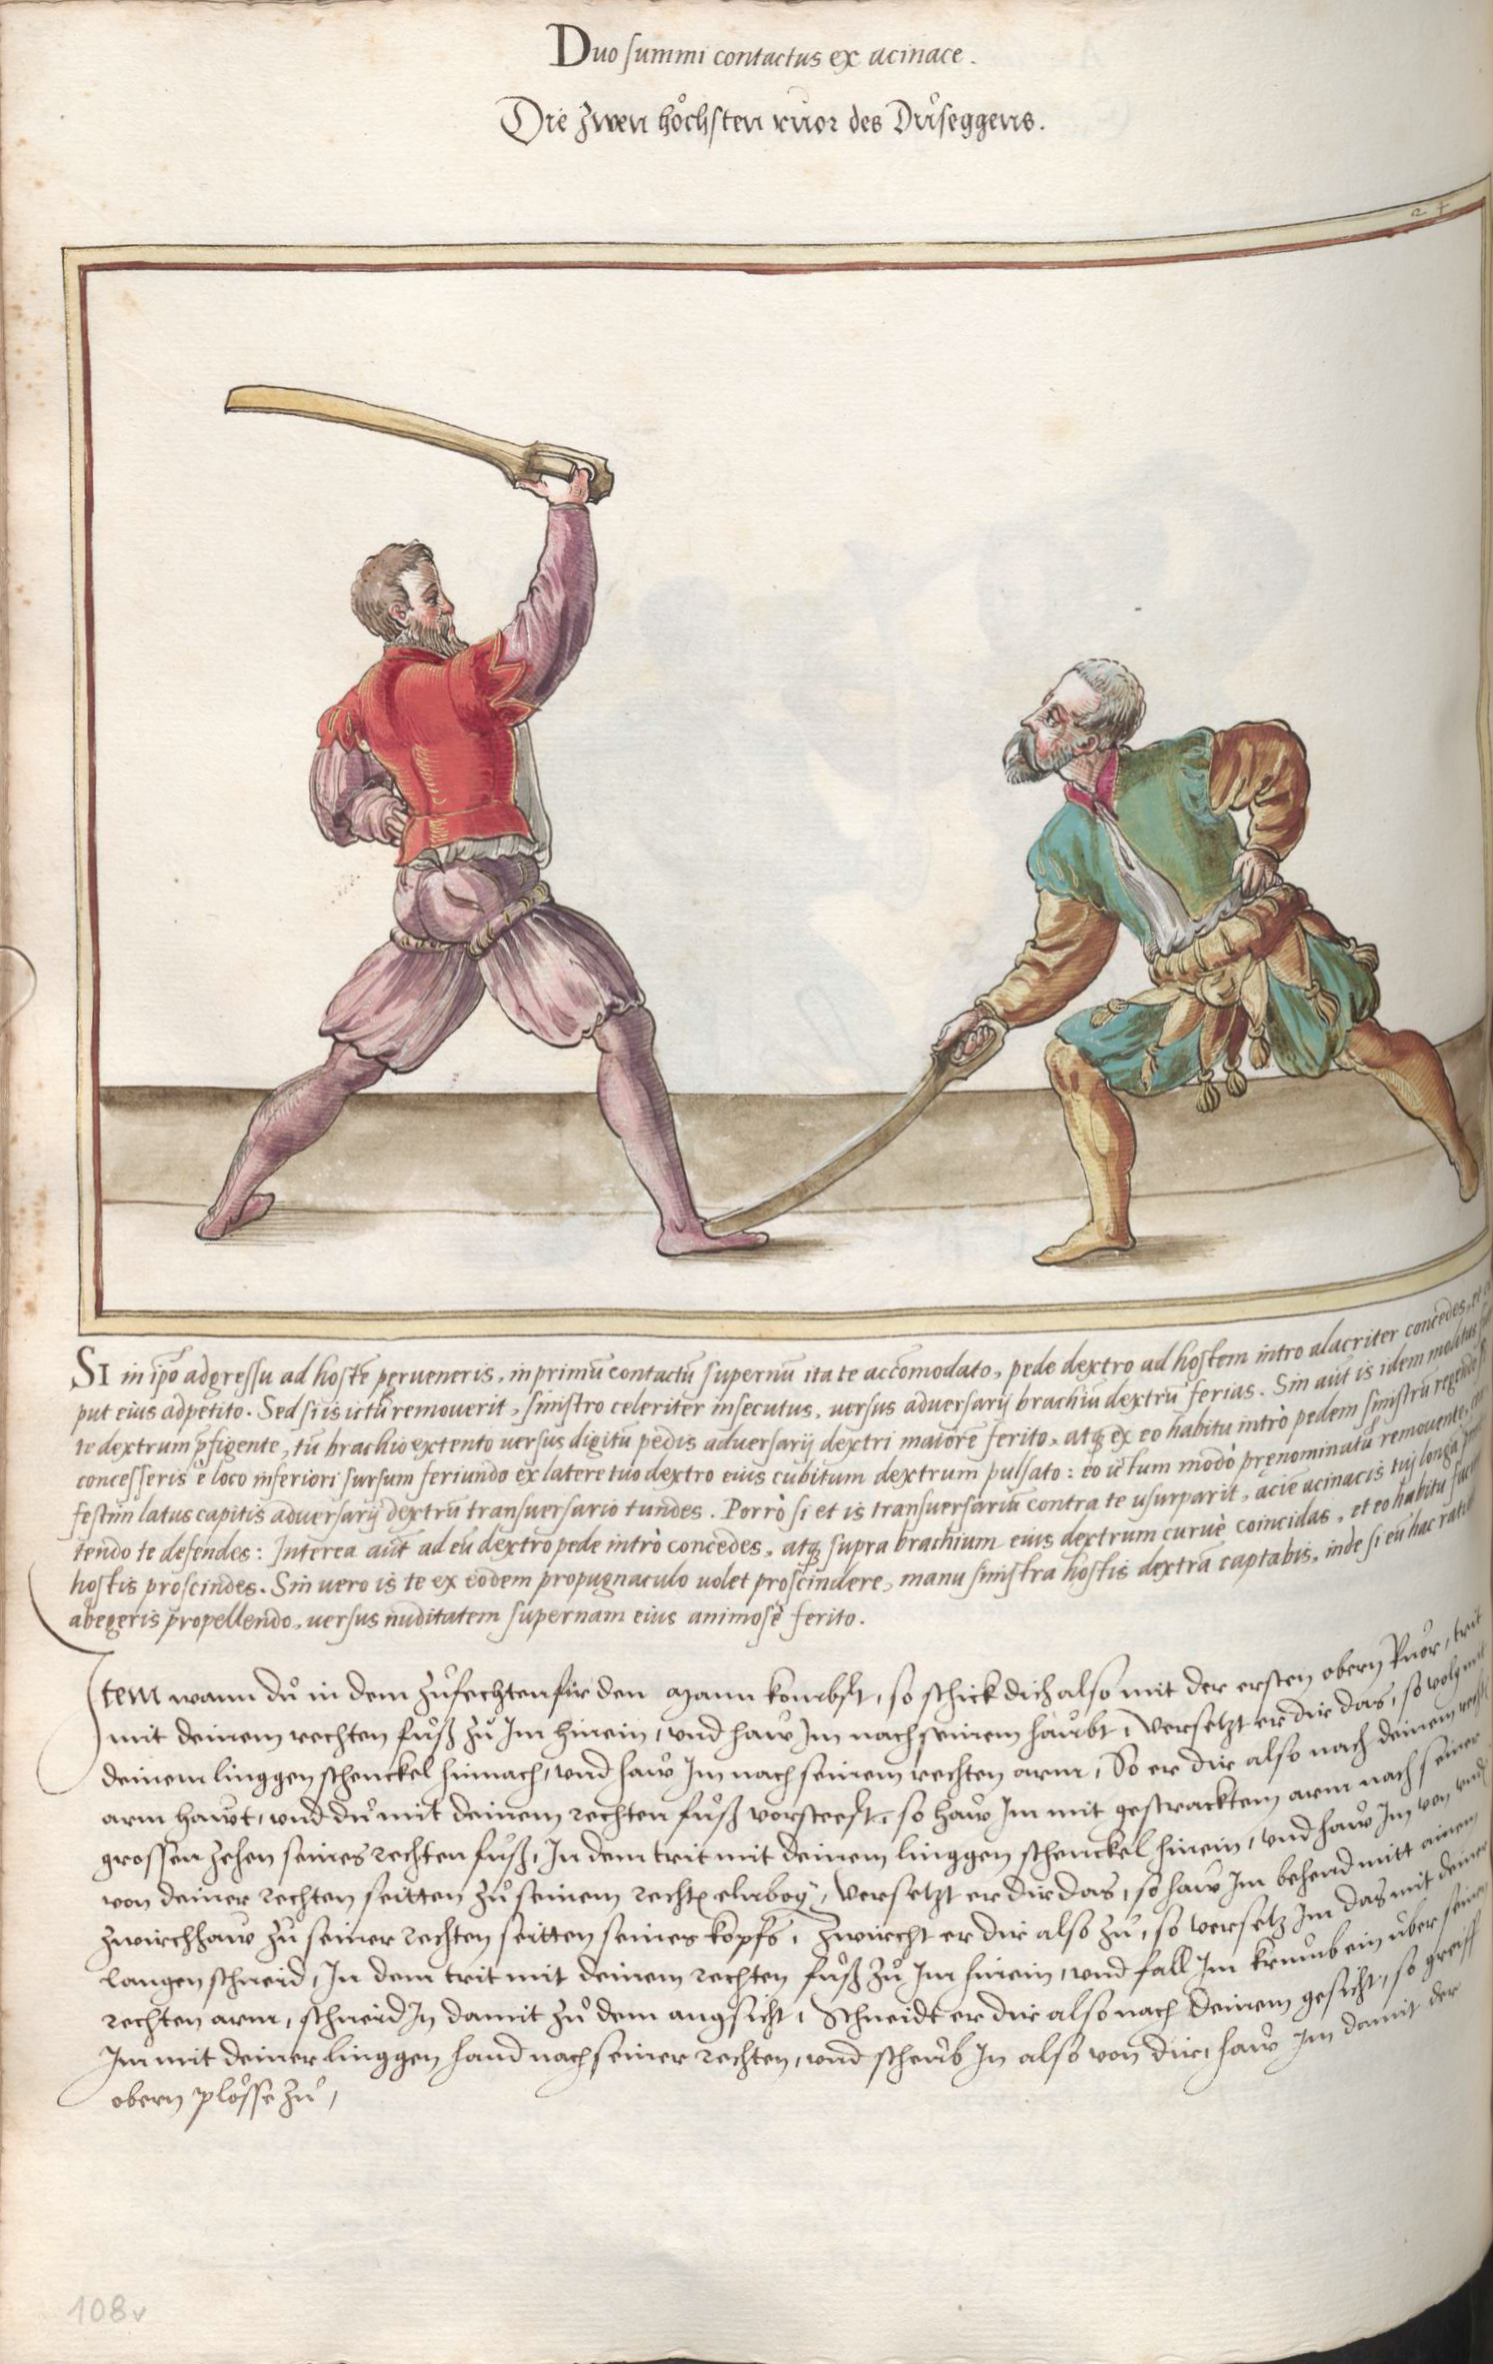 Duo summi contactus ex acinace.
Die zwen höchsten ruor des Duseggens.
24
SI in ip̄o adgressu ad hostē perueneris, in primū contactū supernū ita te accōmodato, pede dextro ad hostem intro alacriter concedes, et
put eius adpetito. Sed si is ictū remouerit, sinistro celeriter insecutus, uersus aduersarij brachiū dextrū ferias. Sin aūt is idem molitus
te dextrum p̄figente, tū brachio extento uersus digitū pedis aduersarij dextri maiorē ferito, atq; ex eo habitu intrò pedem sinistrū regendo
concesseris è loco inferiori sursum feriundo ex latere tuo dextro eius cubitum dextrum pulsato: eo uerum modò prȩnominatū remouente,
festim latus capitis aduersarij dextrū transuersario tundes. Porrò si et is transuersariū contra te usurparit, acie acinacis tui longa
tendo te defendes: Interea aūt ad eū dextro pede intrò concedes, atq; supra brachium eius dextrum curuè coincidas, et eo habitu
hostis proscindes. Sin uero is te ex eodem propugnaculo uolet proscindere, manu sinistra hostis dextrā captabis, inde si eū hac
abegeris propellendo, uersus nuditatem supernam eius animosè ferito.
Item wann du in dem zufechten für den mann kombst, so schick dich also mit der ersten obern Ruor, trit
mit deinem rechten fuß zu Im hinein, und haw Im nach seinem haubt, Versetzt er dir das, so volg mit
deinem linggen schenckel hinnach, und haw Im nach seinem rechten arm, So er dir also nach deinem
arm hawt, und du mit deinem rechten fuß vorsteest, so haw Im mit gestracktem arm nach seiner
grossen zehen seines rechten fuß, In dem trit mit deinem linggen schenckel hinein, und haw Im von
von deiner rechten seitten zu seinem recht elnbog, Versetzt er dir das, so haw Im behend mitt ainem
zwirchhaw zu seiner rechten seitten seines kopfs, Zwircht er dir also zu, so versetz Im das mit deiner
langen schneid, In dem trit mit deinem rechten fuß zu Im hinein, und fall Im krumb ein über seinen
rechten arm, schneid In damit zu dem angsicht, Schneidt er dir also nach deinem gesicht, so greiff
Im mit deiner linggen hand nach seiner rechten, und scheub In also von dir, haw Im damit der
obern plösse zu,
108v